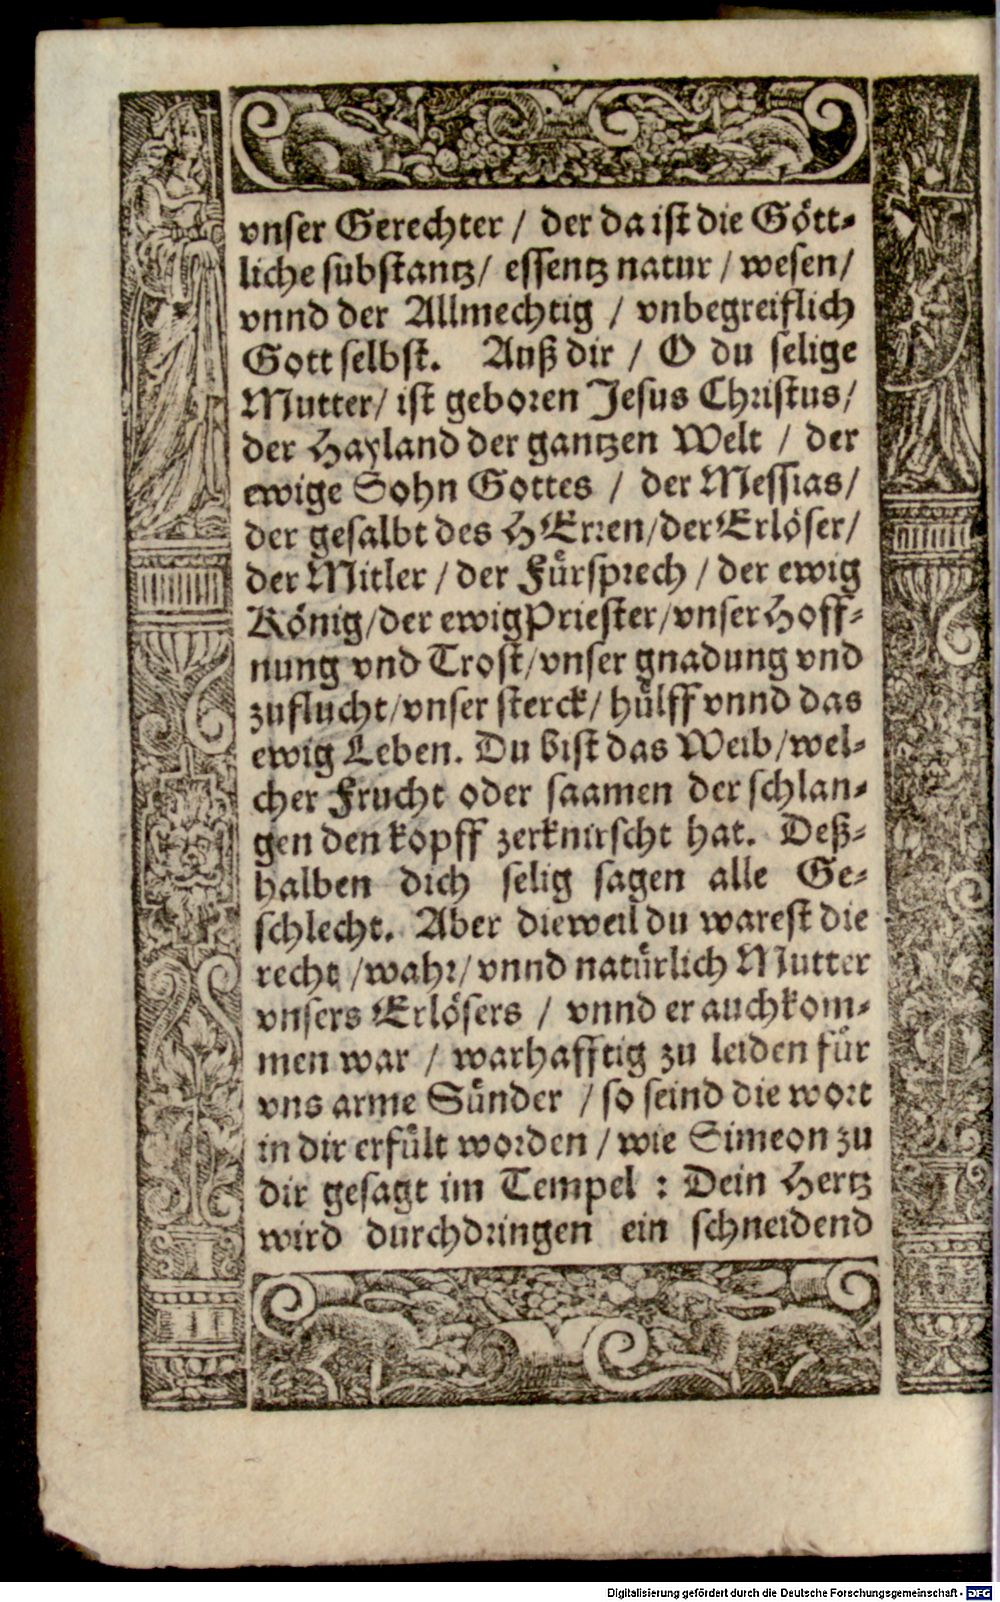 vnser Gerechter / der da ist die Gött-
liche substantz/ essentz natur / wesen/
vnnd der Allmechtig / vnbegreiflich
Gott selbst. Auß dir / O du selige
Mutter/ ist geboren Jesus Christus/
der Hayland der gantzen Welt / der
ewige Sohn Gottes / der Messias/
der gesalbt des HErren/der Erlöser/
der Mitler / der Fürsprech / der ewig
König/der ewig Priester/vnser Hoff-
nung vnd Trost/vnser gnadung vnd
zuflucht/vnser sterck/ hülff vnnd das
ewig Leben. Du bist das Weib/wel-
cher Frucht oder saamen der schlan-
gen den kopff zerknirscht hat. Deß-
halben dich selig sagen alle Ge-
schlecht. Aber dieweil du warest die
recht /wahr/ vnnd natürlich Mutter
vnsers Erlösers / vnnd er auch kom-
men war / warhafftig zu leiden für
vns arme Sünder / so seind die wort
in dir erfült worden / wie Simeon zu
dir gesagt im Tempel : Dein Hertz
wird durchdringen ein schneidend
Digitalisierung gefördert durch die Deutsche Forschungsgemeinschaft - DFG